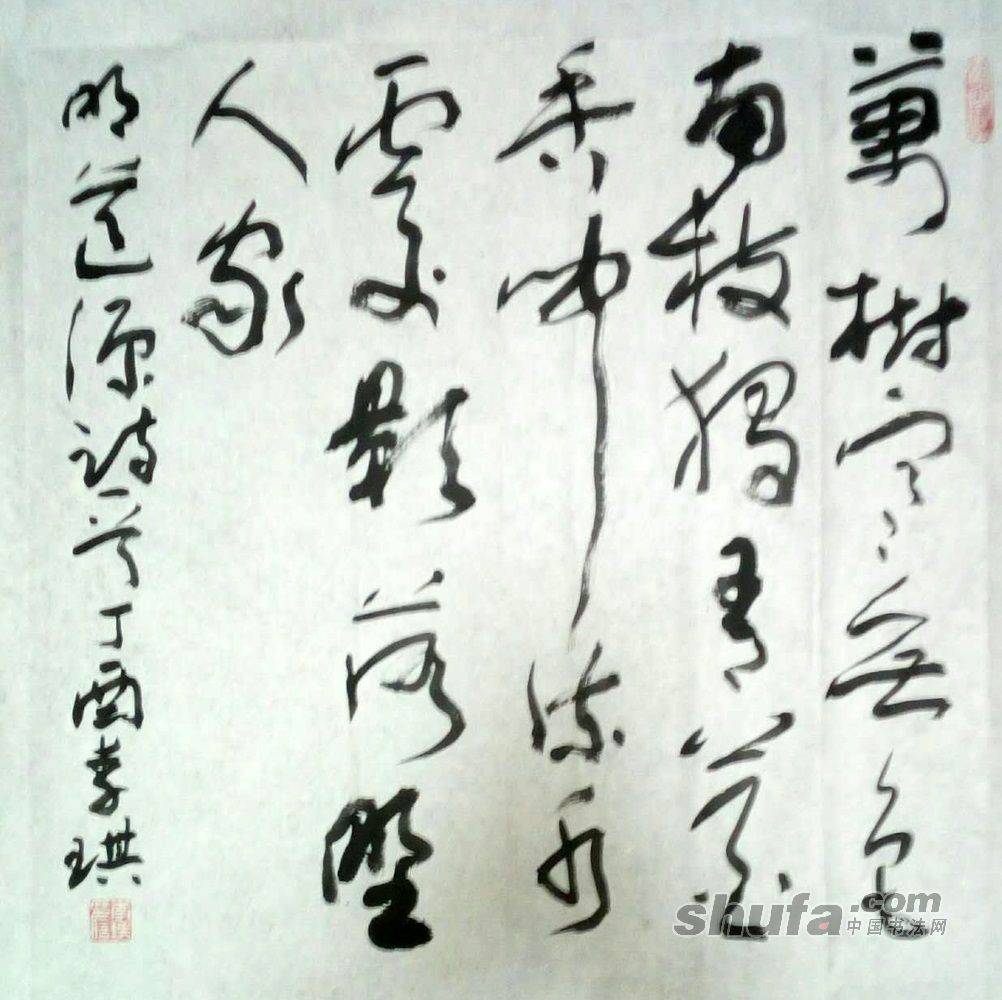 萬樹寒無色
南枝獨有花
香聞流水
處影落野
人家
明道源詩一首丁酉李琪
shufa.com
中国书法网